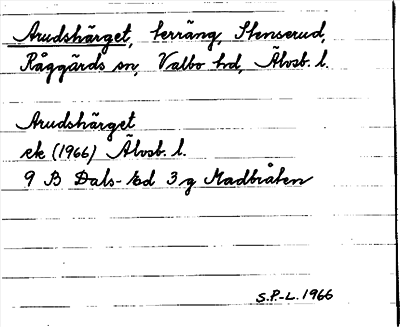 Arudshärget, terräng, Stenserud,
Råggärds sn, Valbo hd, Älvsb. l.
Arudshärget
ek (1966) Älvsb. l.
9 B Dals-Ed 3 g Madbråten
S.P.-L. 1966